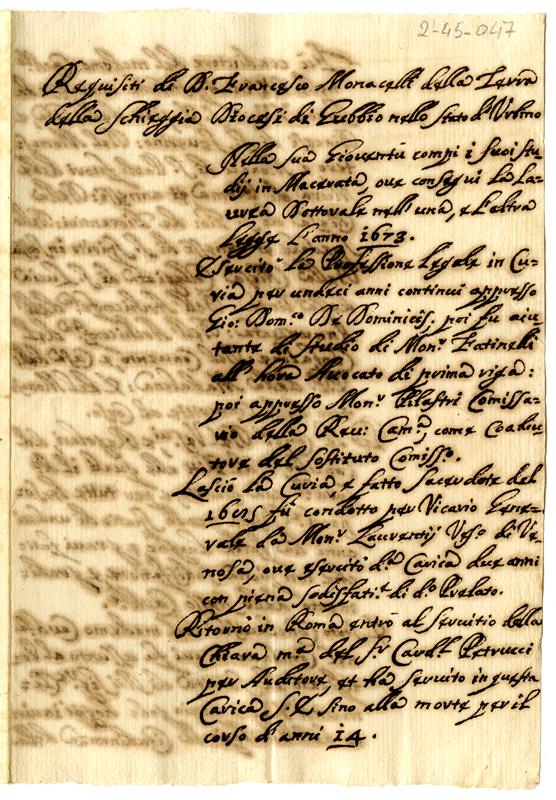 2-45-047
Requisiti di D. Francesco Monacelli della Terra
della Schieggia Diocesi di Gubbio nello Stato d'Urbino
Nella sua Gioventù compì i suoi stu-
dij in Macerata, ove conseguì la La-
urea Dottorale nell'una, e l'altra
legge l'anno 1673.
Esercitò la Professione legale in Cu-
ria per undeci anni continui appresso
Gio: Dom.co De Dominicis, poi fu aiu-
tante di studio di Mon.r Fatinelli
all'hora Avocato di prima riga:
poi appresso Mon.r Pilastri Comissa-
rio della Rev: Cam.a, come Coadiu-
tore del sostituto Comiss.o.
Lasciò la Curia, e fatto Sacerdote del
fù condotto per Vicario Gene-
rale da Mon.r Laurentij Vesc.o di Ve-
nosa, ove esercitò d.a Carica due anni
con piena sodisfat.e di d.o Prelato.
Ritornò in Roma entrò al servitio della
Chiara m.a del S.r Card.l Petrucci
per Auditore, et ha servito in questa
Carica S.E. sino alla morte per il
corso d'anni 14.